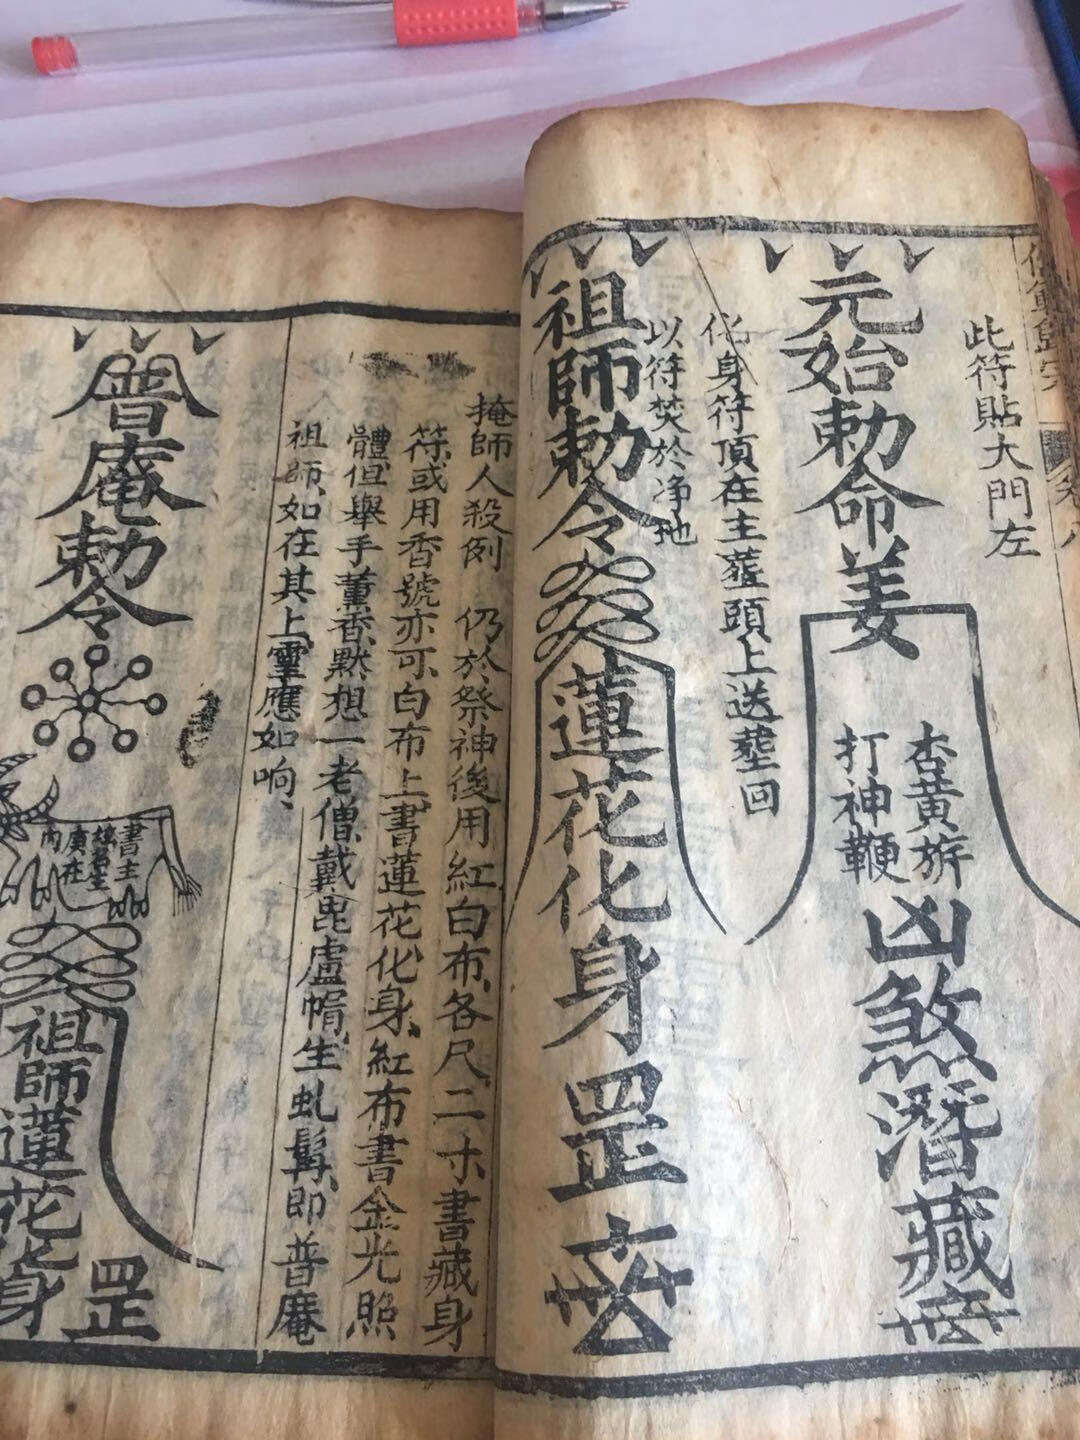 此符貼大門左
元始勅命姜
杏黃旂
打神鞭
凶煞潛藏
化身符頂在主塟頭上送塟回
以符焚於净地
祖師勅令
蓮花化身罡
掩師人殺例　仍於祭神後用紅白布各尺二寸書藏身
符或用香號亦可白布上書蓮花化身紅布書金光照
體但舉手薰香默想一老僧戴毘盧帽生虬髯即普庵
祖師如在其上靈應如响
普庵勅令
書主
庚在
内
祖師蓮花化身
罡